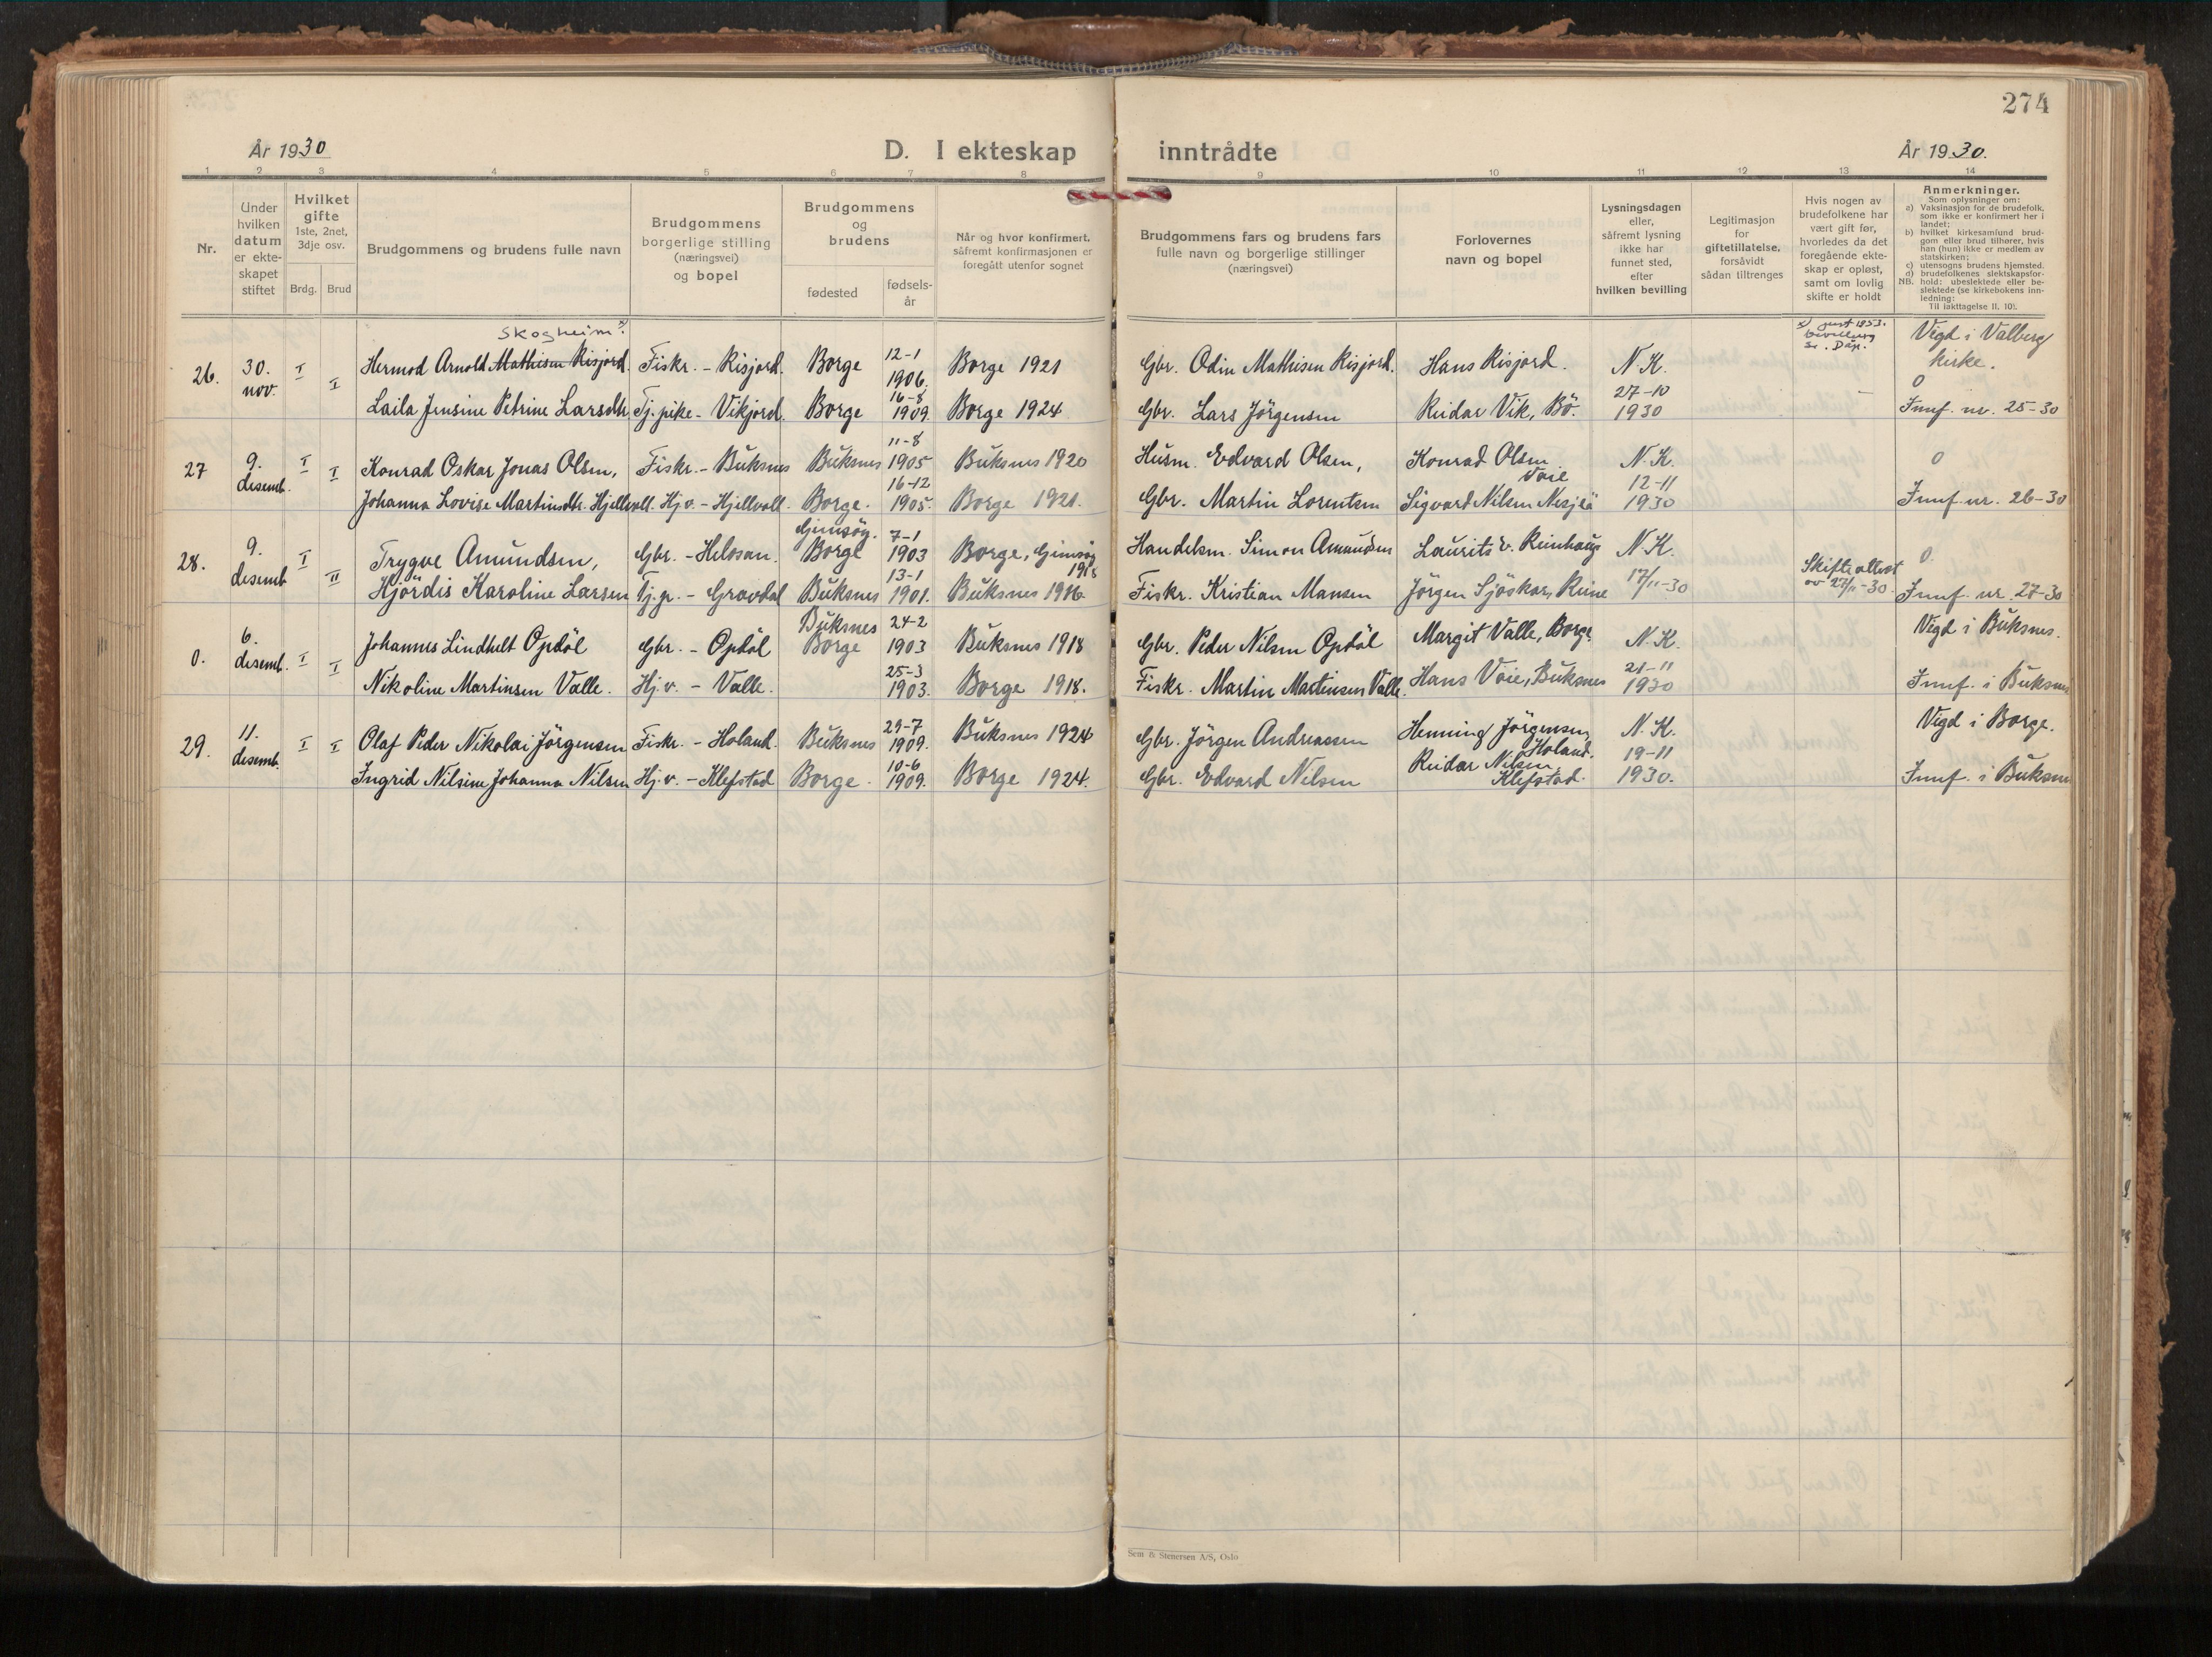 274
År 1930
D. I ekteskap inntrådte
År 1930.
1 2 3 4 5 6 7 8 9 10 11 12 13 14
Nr.
Under hvilken datum er ekte- skapet stiftet
Hvilket gifte 1ste, 2net, 3dje osv.
Brdg. Brud
Brudgommens og brudens fulle navn
Brudgommens borgerlige stilling (næringsvei) og bopel
Brudgommens og brudens
fødested
fødsels- år
Når og hvor konfirmert, såfremt konfirmasjonen er foregått utenfor sognet
Brudgommens fars og brudens fars fulle navn og borgerlige stillinger (næringsvei)
Forlovernes navn og bopel
Lysningsdagen eller, såfremt lysning ikke har funnet sted, efter hvilken bevilling
Legitimasjon for giftetillatelse, forsåvidt sådan tiltrenges
Hvis nogen av brudefolkene har vært gift før, hvorledes da det foregående ekte- skap er opløst, samt om lovlig skifte er holdt
Anmerkninger.
Som oplysninger om:
a) Vaksinasjon for de brudefolk, som ikke er konfirmert her i landet;
b) hvilket kirkesamfund brud- gom eller brud tilhører, hvis han (hun) ikke er medlem av statskirken;
c) utensogns brudens hjemsted.
d) brudefolkenes slektskapsfor- hold: ubeslektede eller be- slektede (se kirkebokens inn- ledning:
NB. Til iakttagelse II. 10).
Skogheim x)
x) just 1953. bevilling se. Dåp.
26. 30. nov. I I Hermod Arnold Mathisen Risjord. Fiskr. - Risjord. Borge 12-1 1906. Borge 1921 Gbr. Odin Mathisen Risjord. Hans Risjord. N.K. Vigd i Valberg kirke.
Laila Jensine Petrine Larsdtr Tj.pike - Vikjord. Borge 16-8 1909. Borge 1924 Gbr. Lars Jörgensen Reidar Vik, Bö. 27-10 1930 0 Innf. nr. 25-30
27 9. desemb. I I Konrad Oskar Jonas Olsen, Fiskr. - Buksnes Buksnes 11-8 1905 Buksnes 1920 Husm. Edvard Olsen, Konrad Olsen Voie N.K. 0
Johanna Lovise Martinsdtr. Hjellvoll. Hj.v. - Hjellvoll. Borge. 16-12 1905. Borge 1921. Gbr. Martin Lorentsen Sigvard Nilsen Nesjeå 12-11 1930 Innf. nr. 26-30
28. 9. desemb I II Trygve Amundsen, Gbr. - Helosan. Gimsöy. Borge 7-1 1903 Borge, Gimsöy 1918 Handelsm. Simon Amundsen Laurits v. Reinhaug N.K. 0.
Hjördis Karoline Larsen Tj.p. - Gravdal Buksnes 13-1 1901. Buksnes 1916 Fiskr. Kristian Mansen Jörgen Sjöskar, Reine 17/11-30 Skifteattest av 27/11-30. Innf. nr. 27-30
0. 6. desemb. I I Johannes Lindhelt Opdöl Gbr. - Opdöl Buksnes Borge 24-2 1903 Buksnes 1918 Gbr. Peder Nilsen Opdöl Margit Valle, Borge N.K. Vigd i Buksnes.
Nikoline Martinsen Valle. Hj.v. - Valle. 25-3 1903. Borge 1918. Fiskr. Martin Martinsen Valle. Hans Voie, Buksnes 21-11 1930 Innf. i Buksnes
29. 11. desemb. I I Olaf Peder Nikolai Jörgensen Fiskr. - Holand. Buksnes 29-7 1909. Buksnes 1924 Gbr. Jörgen Andreassen Henning Jörgensen, Holand. N.K. Vigd i Borge.
Ingrid Nilsine Johanna Nilsen Hj.v. - Klefstad Borge 10-6 1909. Borge 1924. Gbr. Edvard Nilsen Reidar Nilsen, Klefstad. 19-11 1930. Innf. i Buksn
Sem & Stenersen A/S, Oslo